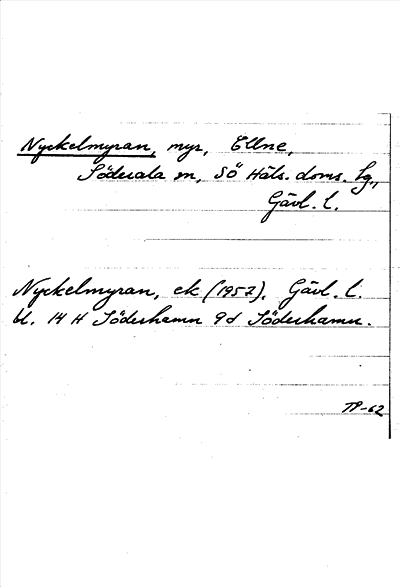 Nyckelmyran, myr, Ellne,
Söderala sn, SÖ Häls. doms. lg.,
Gävl. l.
Nyckelmyran, ek (1957). Gävl. l.
bl. 14 H Söderhamn 9d Söderhamn.
TP-62